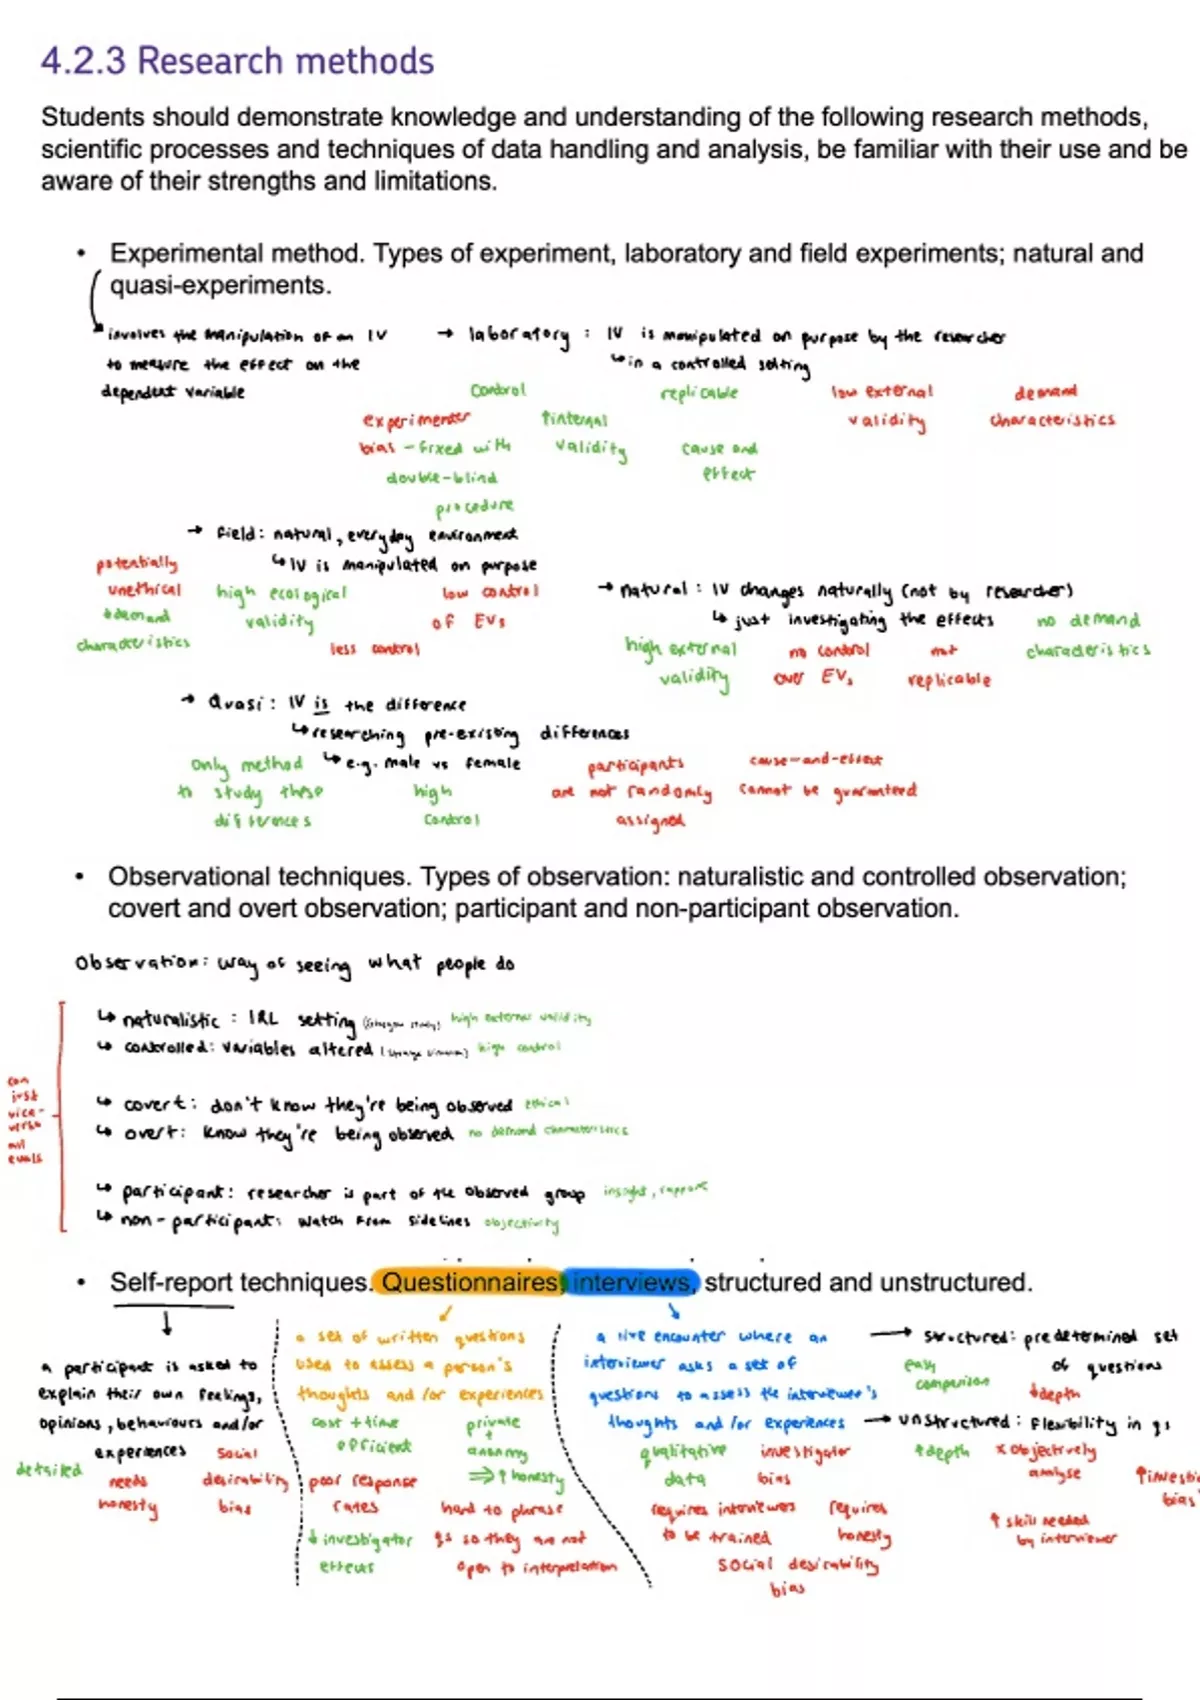 4.2.3 Research methods
Students should demonstrate knowledge and understanding of the following research methods,
scientific processes and techniques of data handling and analysis, be familiar with their use and be
aware of their strengths and limitations.
• Experimental method. Types of experiment, laboratory and field experiments; natural and
quasi-experiments.
involves the manipulation of an IV
to measure the effect on the
dependent variable
→ laboratory : IV is manipulated on purpose by the researcher
↳ in a controlled setting
control
replicable
low external
validity
demand
characteristics
experimenter
bias - fixed with
double-blind
procedure
↑internal
validity
cause and
effect
→ field: natural, everyday environment
↳ IV is manipulated on purpose
potentially
unethical
↓demand
characteristics
high ecological
validity
low control
of EVs
less control
→ natural : IV changes naturally (not by researcher)
↳ just investigating the effects
no demand
characteristics
high external
validity
no control
over EVs
not
replicable
→ Quasi : IV is the difference
↳ researching pre-existing differences
↳ e.g. male vs female
only method
to study these
differences
high
control
participants
are not randomly
assigned
cause-and-effect
cannot be guaranteed
• Observational techniques. Types of observation: naturalistic and controlled observation;
covert and overt observation; participant and non-participant observation.
Observation: way of seeing what people do
↳ naturalistic : IRL setting high external validity
↳ controlled: variables altered high control
↳ covert: don't know they're being observed ethical
↳ overt: know they're being observed no demand characteristics
↳ participant: researcher is part of the observed group insight, rapport
↳ non-participant: watch from sidelines objectivity
can
just
vice-
versa
all
evals
• Self-report techniques. Questionnaires, interviews, structured and unstructured.
a participant is asked to
explain their own feelings,
opinions, behaviours and/or
experiences
detailed
needs
honesty
social
desirability
bias
a set of written questions
used to assess a person's
thoughts and/or experiences
cost + time
efficient
private
+
anonmy
⇒ ↑ honesty
poor response
rates
↓ investigator
effects
hard to phrase
qs so they are not
open to interpretation
a live encounter where an
interviewer asks a set of
questions to assess the interviewee's
thoughts and/or experiences
qualitative
data
investigator
bias
requires interviewers
to be trained
requires
honesty
social desirability
bias
→ structured: predetermined set
of questions
easy
comparison
↓depth
→ unstructured: flexibility in qs
↑depth
x objectively
analyse
↑investig
bias
↑ skill needed
by interviewer